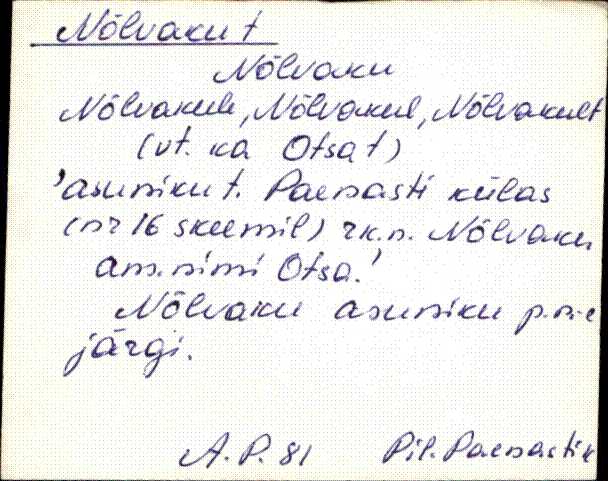 Nõlvaku t
Nõlvaku
Nõlvakule, Nõlvakul, Nõlvakult
(vt. ka Otsa t)
'asuniku t. Paenasti külas
(nr 16 skeemil) rk.n. Nõlvaku
am.nimi Otsa.'
Nõlvaku asuniku p.
järgi.
A.P. 81 Pil. Paenastik